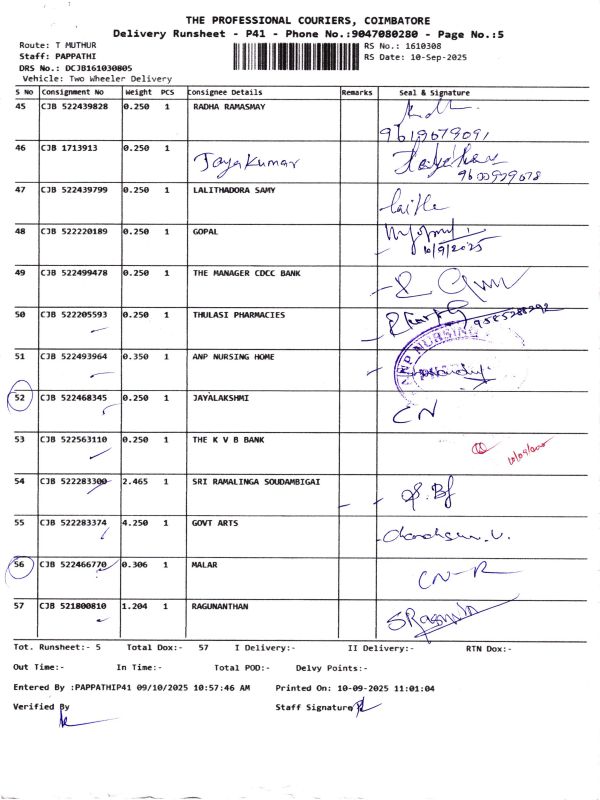 THE PROFESSIONAL COURIERS, COIMBATORE
Delivery Runsheet - P41 - Phone No.:9047080280 - Page No.:5
Route: T MUTHUR
RS No.: 1610308
Staff: PAPPATHI
RS Date: 10-Sep-2025
DRS No.: DCJB161030805
Vehicle: Two Wheeler Delivery
S No Consignment No Weight PCS Consignee Details Remarks Seal & Signature
45 CJB 522439828 0.250 1 RADHA RAMASMAY
46 CJB 1713913 0.250 1 Jayakumar
47 CJB 522439799 0.250 1 LALITHADORA SAMY
48 CJB 522220189 0.250 1 GOPAL
10/9/2025
49 CJB 522499478 0.250 1 THE MANAGER CDCC BANK
50 CJB 522205593 0.250 1 THULASI PHARMACIES
51 CJB 522493964 0.350 1 ANP NURSING HOME
ANP NURSING
52 CJB 522468345 0.250 1 JAYALAKSHMI CN
53 CJB 522563110 0.250 1 THE K V B BANK
54 CJB 522283300 2.465 1 SRI RAMALINGA SOUDAMBIGAI
55 CJB 522283374 4.250 1 GOVT ARTS
56 CJB 522466770 0.306 1 MALAR CN-R
57 CJB 521800810 1.204 1 RAGUNANTHAN
Tot. Runsheet:- 5 Total Dox:- 57 I Delivery:- II Delivery:- RTN Dox:-
Out Time:- In Time:- Total POD:- Delvy Points:-
Entered By :PAPPATHIP41 09/10/2025 10:57:46 AM Printed On: 10-09-2025 11:01:04
Verified By Staff Signature